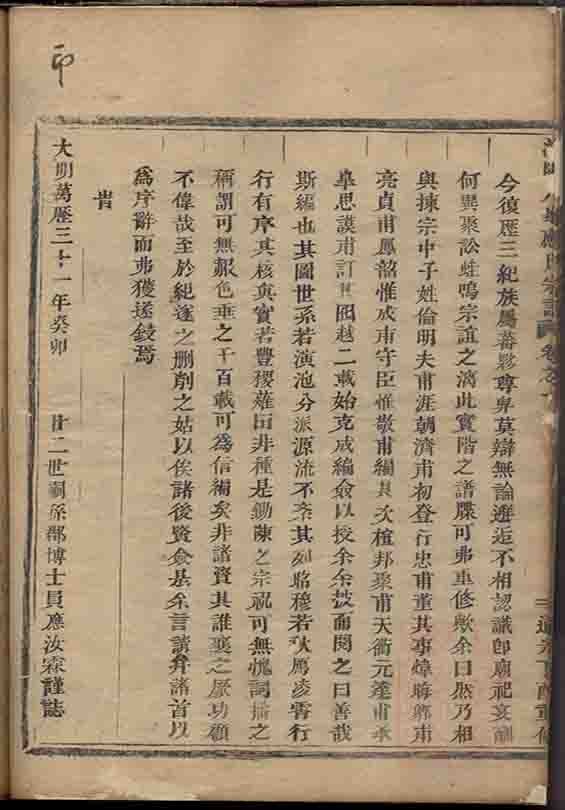 今復歷三紀族屬蕃夥尊卑莫辯無論邂逅不相認識卽廟祀宴酬
何異聚訟蛙鳴宗誼之漓此實階之譜牒可弗重修歟余曰然乃相
與揀宗中子姓倫明夫甫涯朝濟甫初登行忠甫董其事煒晦鄉甫
亮貞甫鳳韶惟成甫守臣惟敬甫編其次楦邦聚甫天衢元達甫承
皐思謨甫訂其圖越二載始克成編僉以授余余披而閱之曰善哉
斯編也其圖世系若演池分派源流不紊其列昭穆若秋鴈凌霄行
行有序其核眞實若豐稷薙田非種是鋤陳之宗祝可無愧詞播之
稱謂可無靦色垂之千百載可爲信編矣非諸賢其誰襄之厥功顧
不偉哉至於紀邃之刪削之姑以俟諸後賢僉基余言請弁諸首以
爲序辭而弗獲遂錄焉
旹
大明萬歷三十一年癸卯 廿二世嗣孫郡博士員應汝霖謹誌
印